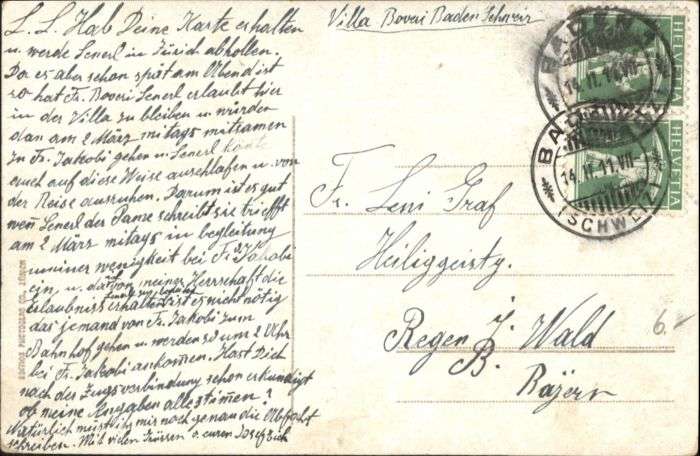 Villa Boveri Baden Schweiz
L. L. Hab Deine Karte erhalten
u. werde Lenerl in Zürich abhollen.
Da es aber schon spät am Abend ist
so hat Fr. Boveri Lenerl erlaubt hier
in der Villa zu bleiben u. würden
dan am 2 März mitags mitsamen
zu Fr. Jakobi gehen u. Lenerl könte
euch auf diese Weise auschlafen u. von
der Reise ausruhen. Darum ist es gut
wen Lenerl der Danze schreibt sie trifft
am 2 März mitags in begleitung
meiner wenigkeit bei Fr. Jakobi
ein, u. da von meiner Herrschaft die
Erlaubniss erhalten ist es nicht nötig
das jemand von Fr. Jakobi zum
Bahnhof gehen u. werden so um 2 Uhr
bei Fr. Jakobi ankomen. Hast Dich
nach der Zugsverbindung schon erkundigt
ob meine Angaben alle stimen?
Natürlich must ihr mir noch genau die Abfahrt
schreiben. Mit vielen Grüssen v. euren
EDITION PHOTOGLOB CO., ZÜRICH
HELVETIA
HELVETIA
BADEN
14.II.11.VII
(SCHWEIZ)
BADEN
14.II.11.VII
(SCHWEIZ)
Fr. Leni Graf
Heiliggeistg.
Regen i. Wald
B.
Bayern
6.-